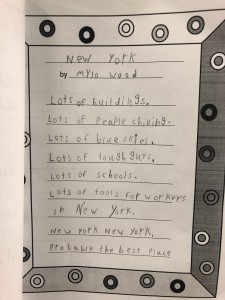 New York
by Mylo Wood
Lots of buildings.
Lots of people driving.
Lots of blue skies.
Lots of tough guys.
Lots of schools.
Lots of tools for workers
in New York.
New York New York,
Probably the best place